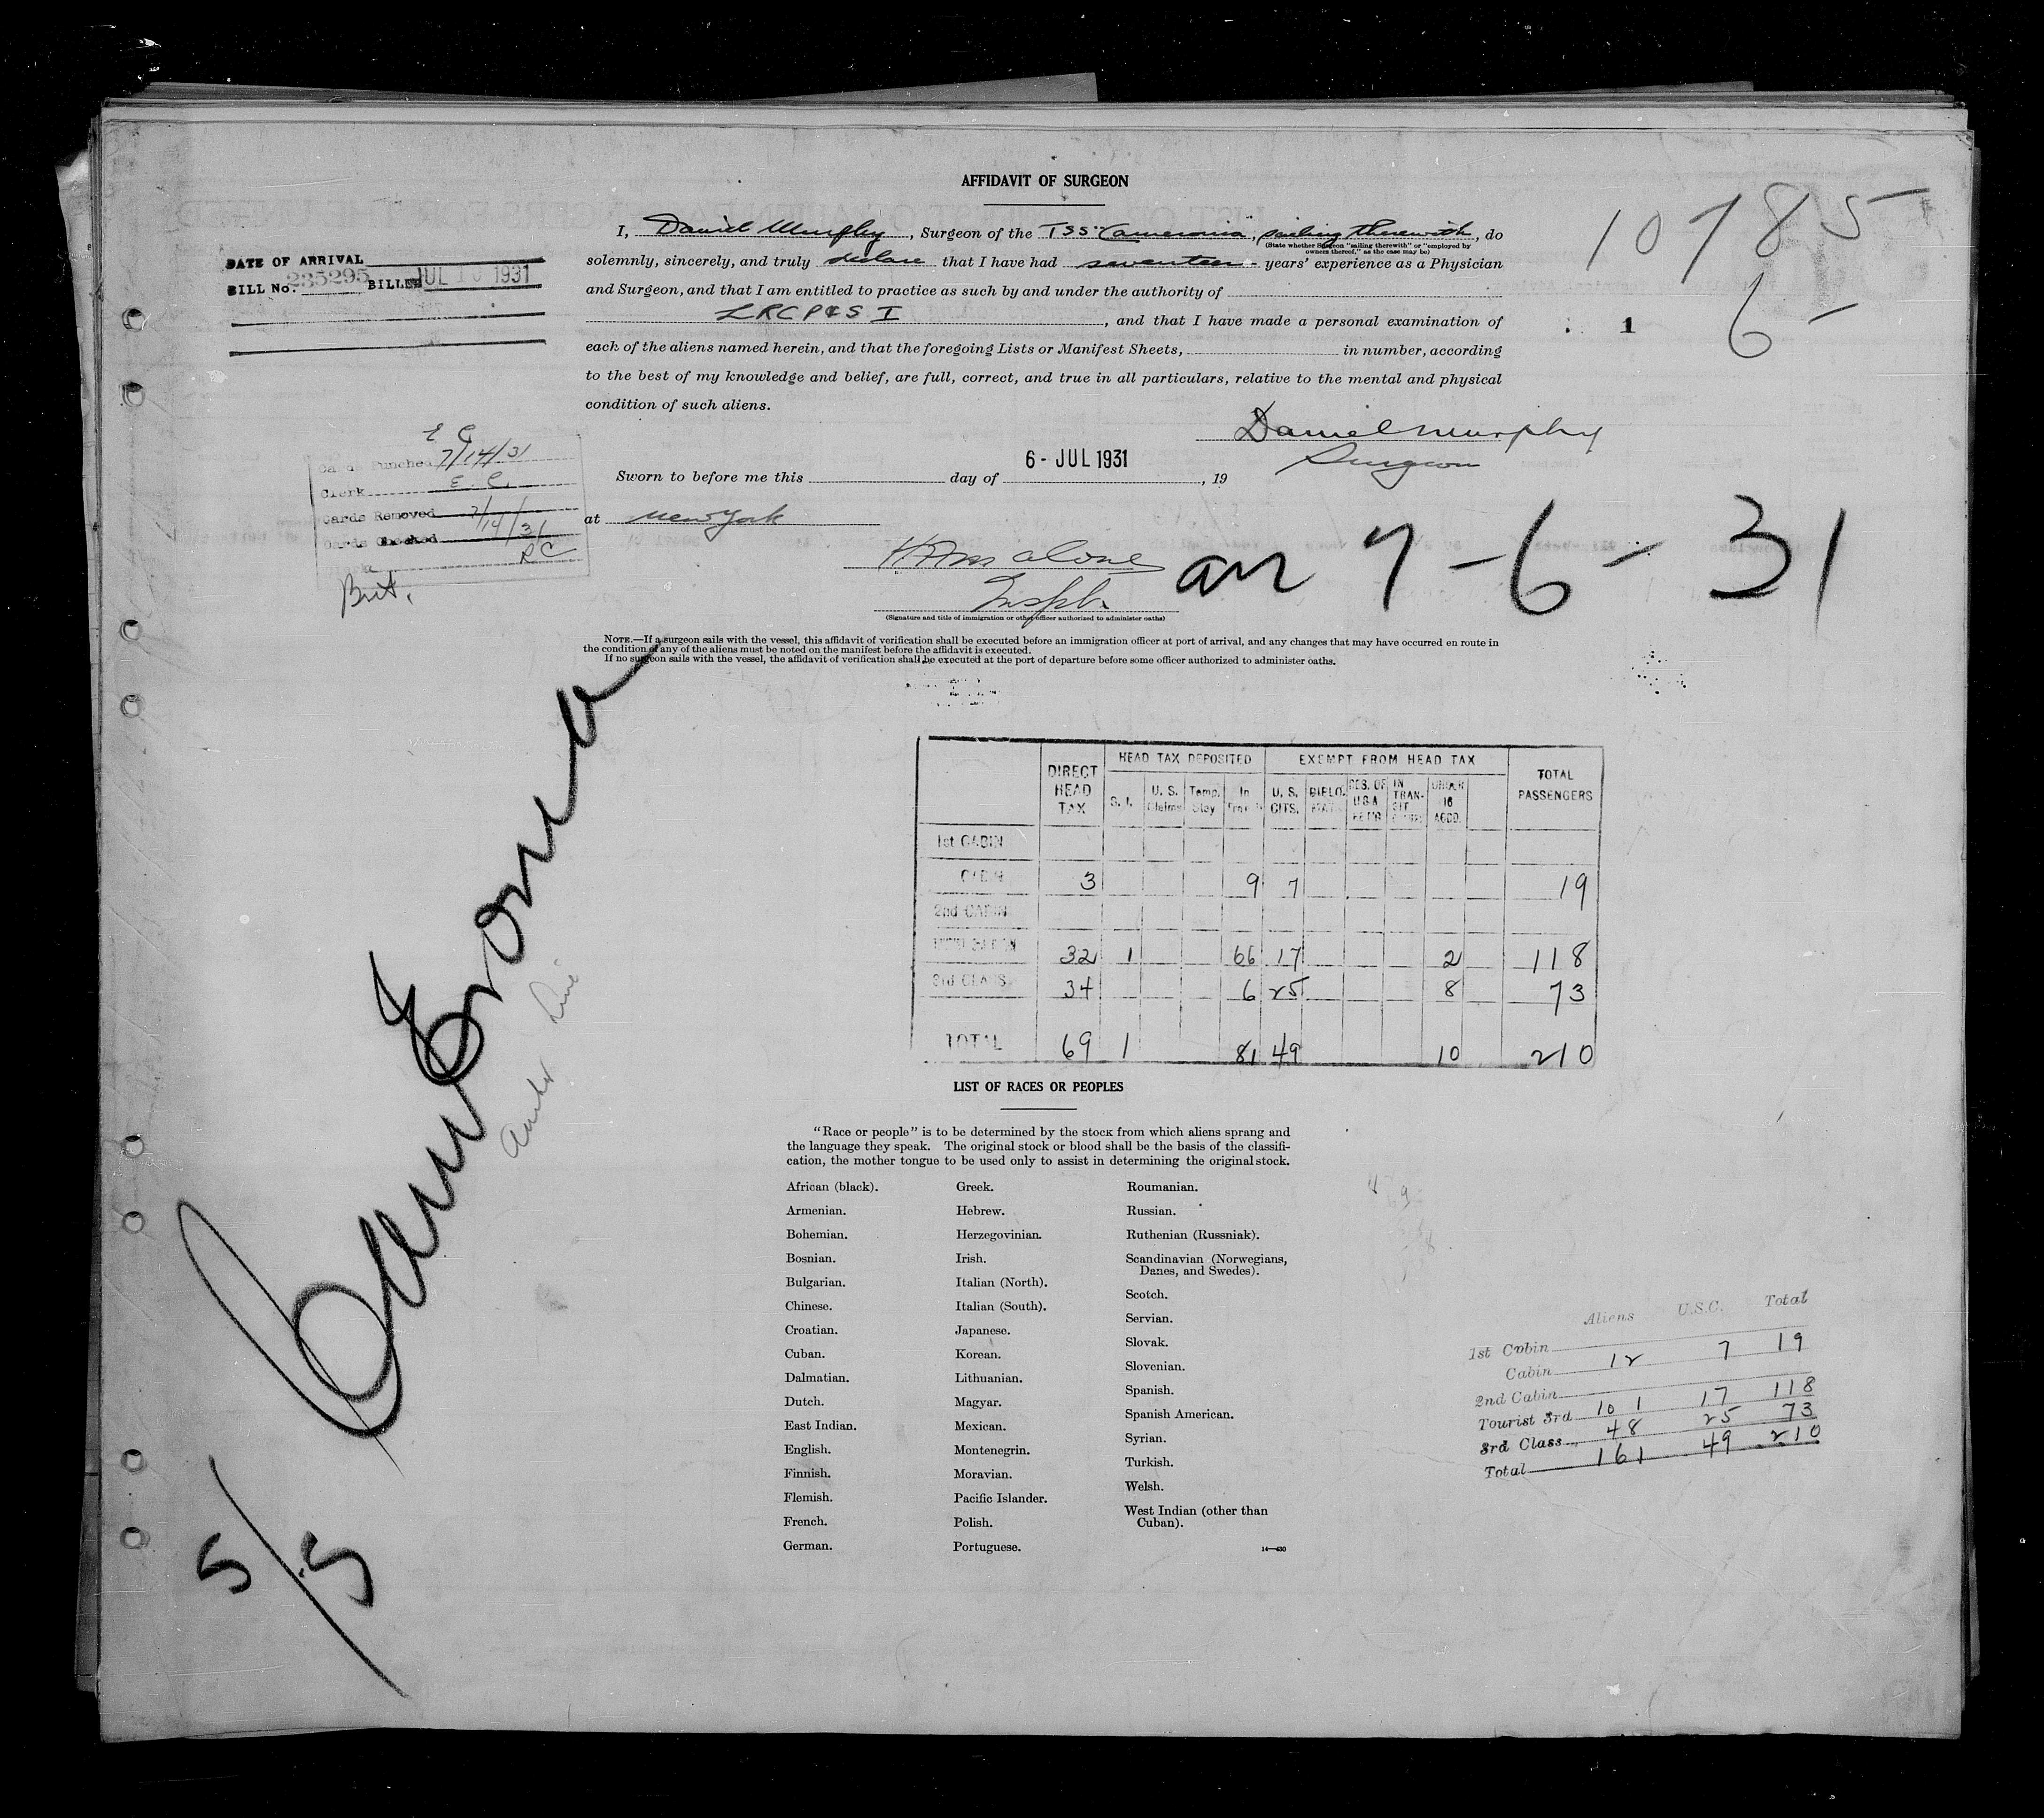 AFFIDAVIT OF SURGEON
I, Daniel Murphy, Surgeon of the TSS "Cameronia", sailing therewith, do
(State whether Surgeon "sailing therewith" or "employed by
owners thereof," as the case may be)
solemnly, sincerely, and truly declare that I have had seventeen years' experience as a Physician
and Surgeon, and that I am entitled to practice as such by and under the authority of
LRCP&S I, and that I have made a personal examination of
each of the aliens named herein, and that the foregoing Lists or Manifest Sheets, in number, according
to the best of my knowledge and belief, are full, correct, and true in all particulars, relative to the mental and physical
condition of such aliens.
Daniel Murphy
Surgeon
Sworn to before me this day of 6 - JUL 1931, 19
at New York
Inspt.
(Signature and title of immigration or other officer authorized to administer oaths)
arr 7-6-31
10785
6-
1
DATE OF ARRIVAL
BILL No. 235295 BILLED JUL 10 1931
E C
Cards Punched 7/14/31
Clerk E. C.
Cards Removed 7/14/31
Cards Checked
RC
Brit.
NOTE.—If a surgeon sails with the vessel, this affidavit of verification shall be executed before an immigration officer at port of arrival, and any changes that may have occurred en route in
the condition of any of the aliens must be noted on the manifest before the affidavit is executed.
If no surgeon sails with the vessel, the affidavit of verification shall be executed at the port of departure before some officer authorized to administer oaths.
Cameronia
Anchor Line
5/5
DIRECT HEAD TAX HEAD TAX DEPOSITED EXEMPT FROM HEAD TAX TOTAL PASSENGERS
S. I. U. S. Claims Temp. Stay In Transit U. S. CITS. DIPLOMATS RES. OF U S A RET'G IN TRANSIT UNDER 16 ACCD.
1st CABIN
CABIN 3 9 7 19
2nd CABIN
32 1 66 17 2 118
3rd CLASS 34 6 25 8 73
TOTAL 69 1 81 49 10 210
LIST OF RACES OR PEOPLES
"Race or people" is to be determined by the stock from which aliens sprang and
the language they speak. The original stock or blood shall be the basis of the classifi-
cation, the mother tongue to be used only to assist in determining the original stock.
African (black).
Armenian.
Bohemian.
Bosnian.
Bulgarian.
Chinese.
Croatian.
Cuban.
Dalmatian.
Dutch.
East Indian.
English.
Finnish.
Flemish.
French.
German.
Greek.
Hebrew.
Herzegovinian.
Irish.
Italian (North).
Italian (South).
Japanese.
Korean.
Lithuanian.
Magyar.
Mexican.
Montenegrin.
Moravian.
Pacific Islander.
Polish.
Portuguese.
Roumanian.
Russian.
Ruthenian (Russniak).
Scandinavian (Norwegians,
Danes, and Swedes).
Scotch.
Servian.
Slovak.
Slovenian.
Spanish.
Spanish American.
Syrian.
Turkish.
Welsh.
West Indian (other than
Cuban).
14—430
Aliens U.S.C. Total
1st Cabin
Cabin 12 7 19
2nd Cabin
Tourist 3rd 101 17 118
3rd Class 48 25 73
Total 161 49 210